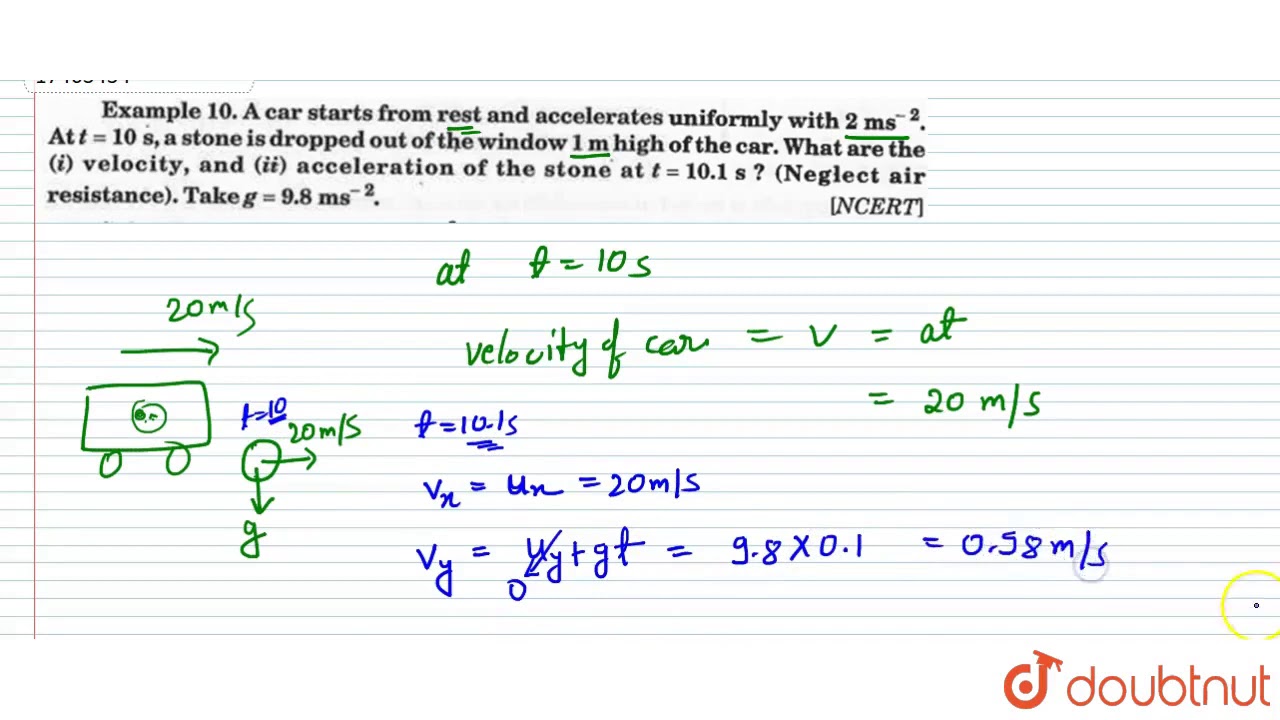 Example 10. A car starts from rest and accelerates uniformly with 2 ms⁻².
At t = 10 s, a stone is dropped out of the window 1 m high of the car. What are the
(i) velocity, and (ii) acceleration of the stone at t = 10.1 s ? (Neglect air
resistance). Take g = 9.8 ms⁻².
[NCERT]
at t = 10 s
20 m/s
velocity of car = v = at
= 20 m/s
t=10
20 m/s
t = 10.1s
vx = ux = 20 m/s
g
vy = uy + gt = 9.8 X 0.1 = 0.98 m/s
0
doubtnut